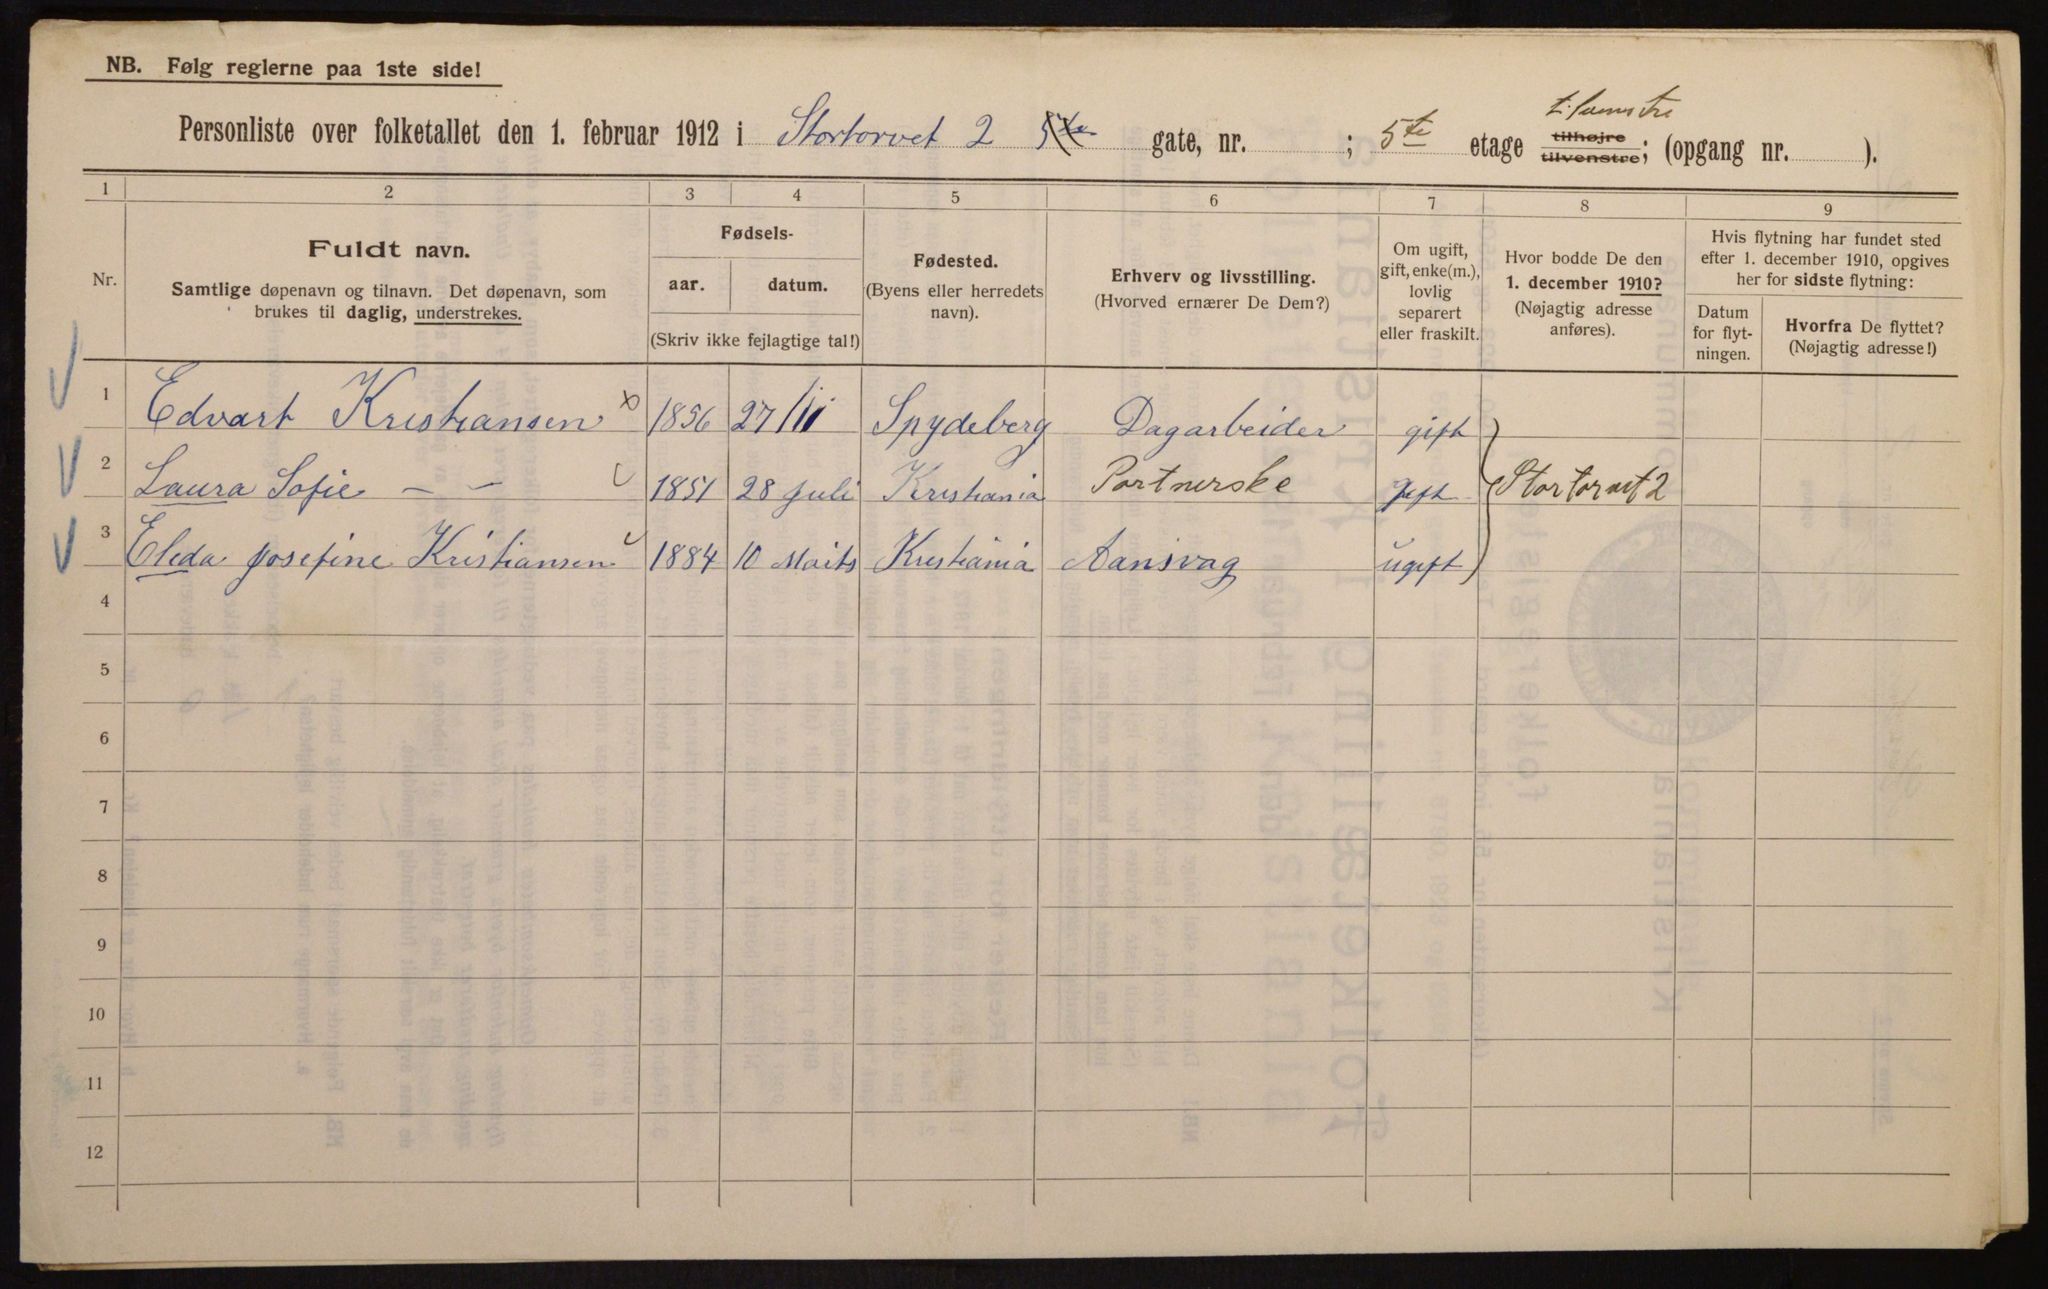 NB. Følg reglerne paa 1ste side!
Personliste over folketallet den 1. februar 1912 i Stortorvet 2 5te gate, nr. ; 5te etage tilhøjre tilvenstre; (opgang nr. ).
1 2 3 4 5 6 7 8 9
Nr.
Fuldt navn.
Samtlige døpenavn og tilnavn. Det døpenavn, som
brukes til daglig, understrekes.
Fødsels-
aar. datum.
(Skriv ikke fejlagtige tal!)
Fødested.
(Byens eller herredets
navn).
Erhverv og livsstilling.
(Hvorved ernærer De Dem?)
Om ugift,
gift, enke(m.),
lovlig
separert
eller fraskilt.
Hvor bodde De den
1. december 1910?
(Nøjagtig adresse
anføres).
Hvis flytning har fundet sted
efter 1. december 1910, opgives
her for sidste flytning:
Datum
for flyt-
ningen.
Hvorfra De flyttet?
(Nøjagtig adresse!)
1 Edvart Kristiansen x 1856 27/III Spydeberg Dagarbeider gift
2 Laura Sofie – – 1851 28 Juli Kristiania Portnerske gift Stortorvet 2
3 Eleda Josefine Kristiansen 1884 10 Marts Kristiania Aansvag ugift
4
5
6
7
8
9
10
11
12